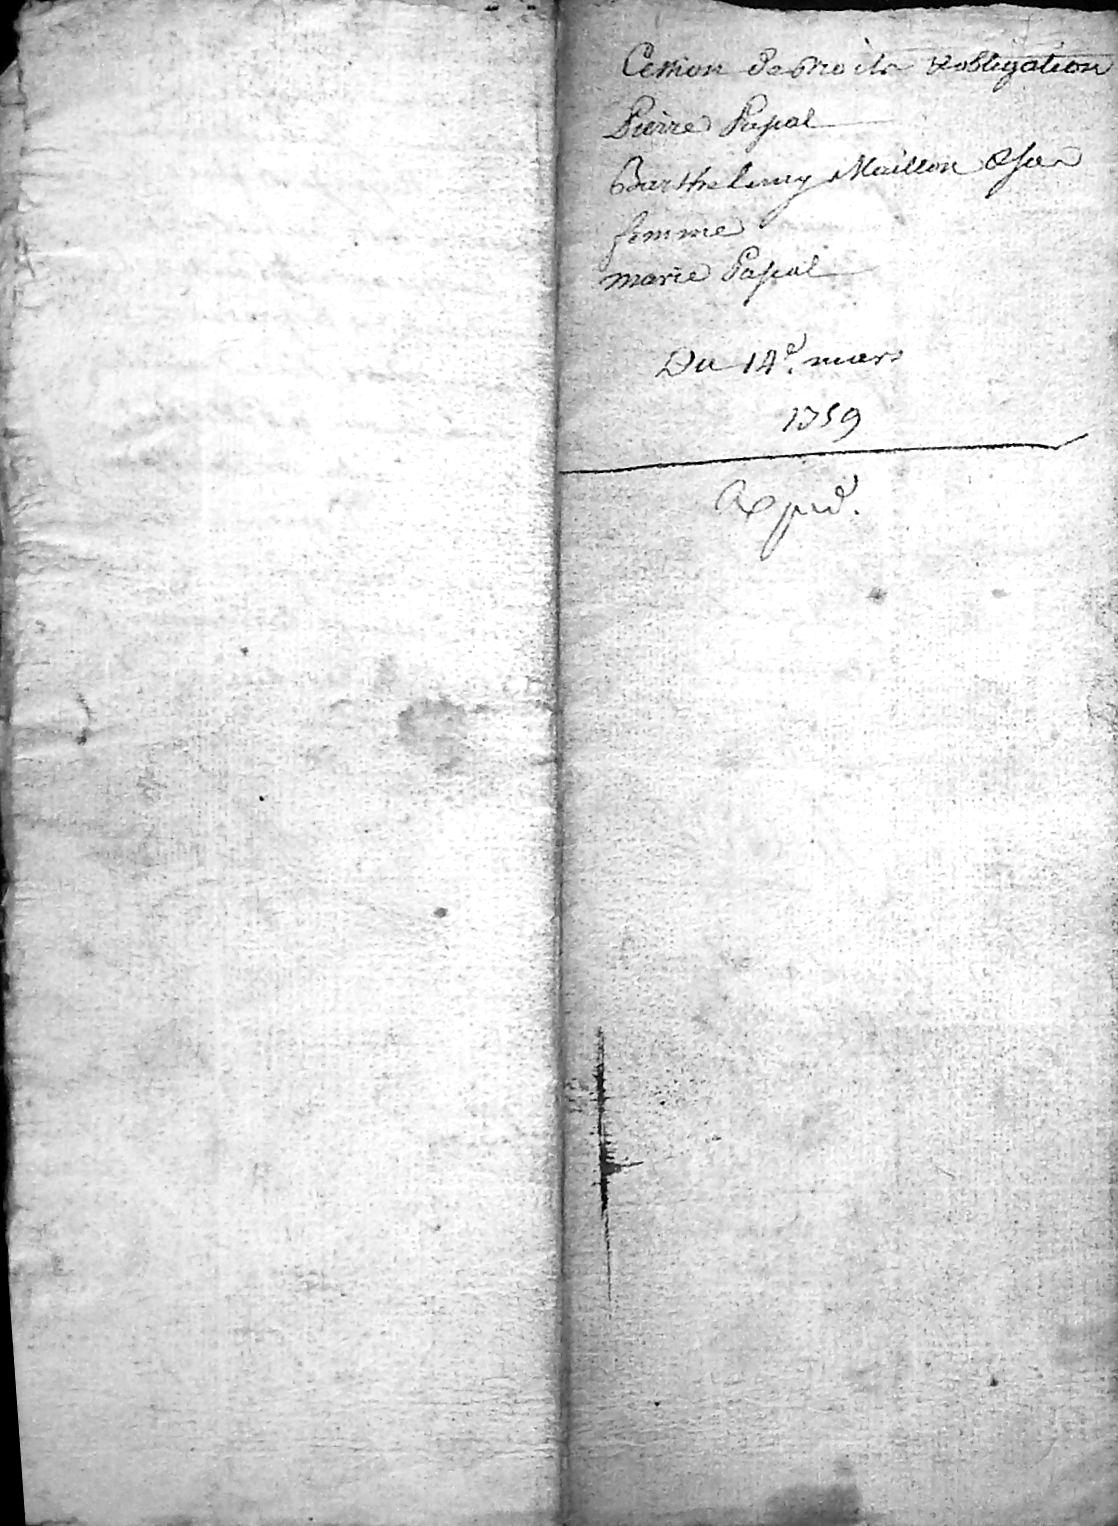 Cession de droits & obligation
Pierre Papal
Barthelemy Maillon & sa
femme
marie Papal
Du 14e. mars
1759
Exped.